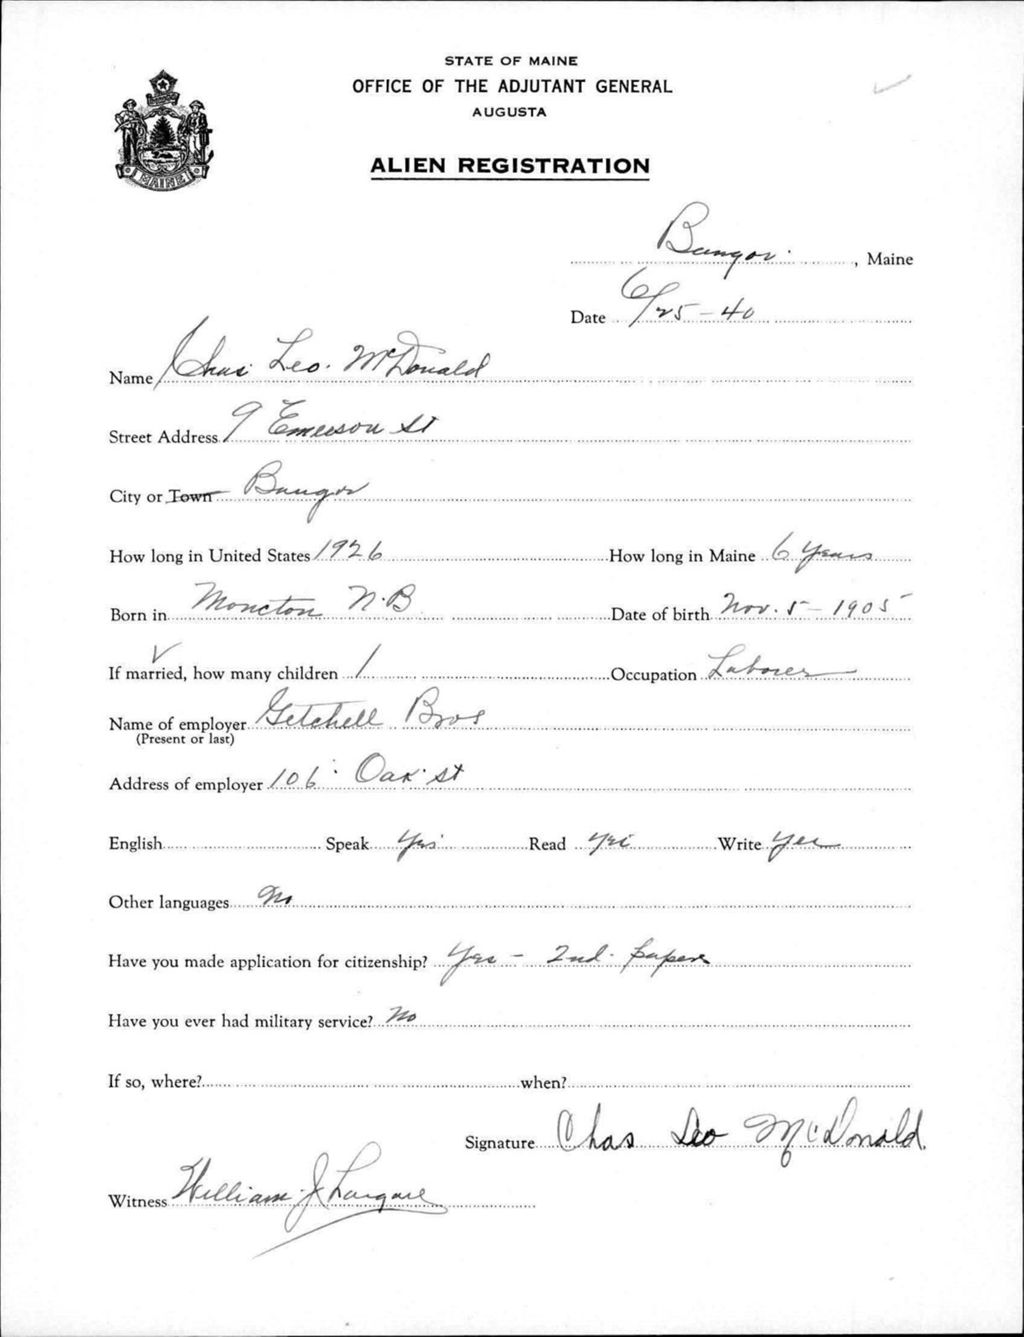 STATE OF MAINE
OFFICE OF THE ADJUTANT GENERAL
AUGUSTA
ALIEN REGISTRATION
MAINE
Bangor, Maine
Date 6/25-40
Name Chas. Leo. McDonald
Street Address 9 Emerson St
City or Town Bangor
How long in United States 1926 How long in Maine 6 Years
Born in Moncton N.B Date of birth Nov. 5-1905
If married, how many children 1 Occupation Laborer
Name of employer Getchell Bros
(Present or last)
Address of employer 106 Oak St
English Speak Yes Read Yes Write Yes
Other languages No
Have you made application for citizenship? Yes - 2nd. papers
Have you ever had military service? No
If so, where? when?
Signature Chas Leo McDonald.
Witness William J